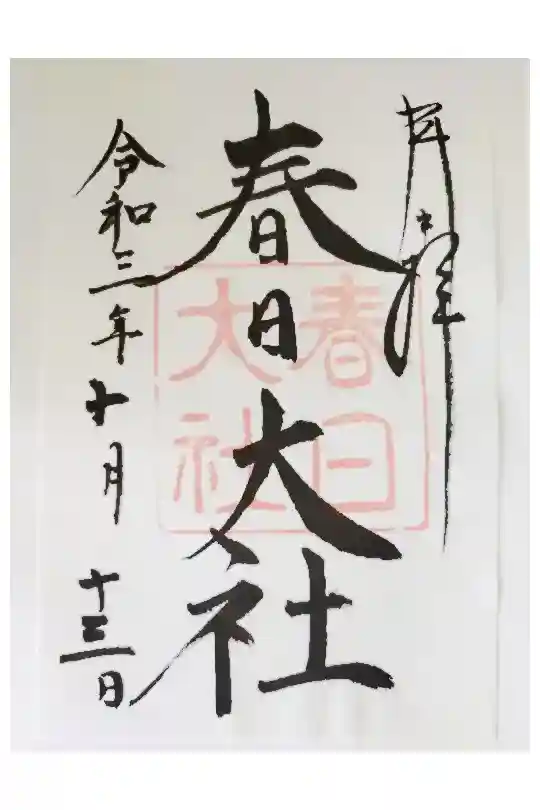 奉拝
春日大社
令和三年十月十三日
春日大社